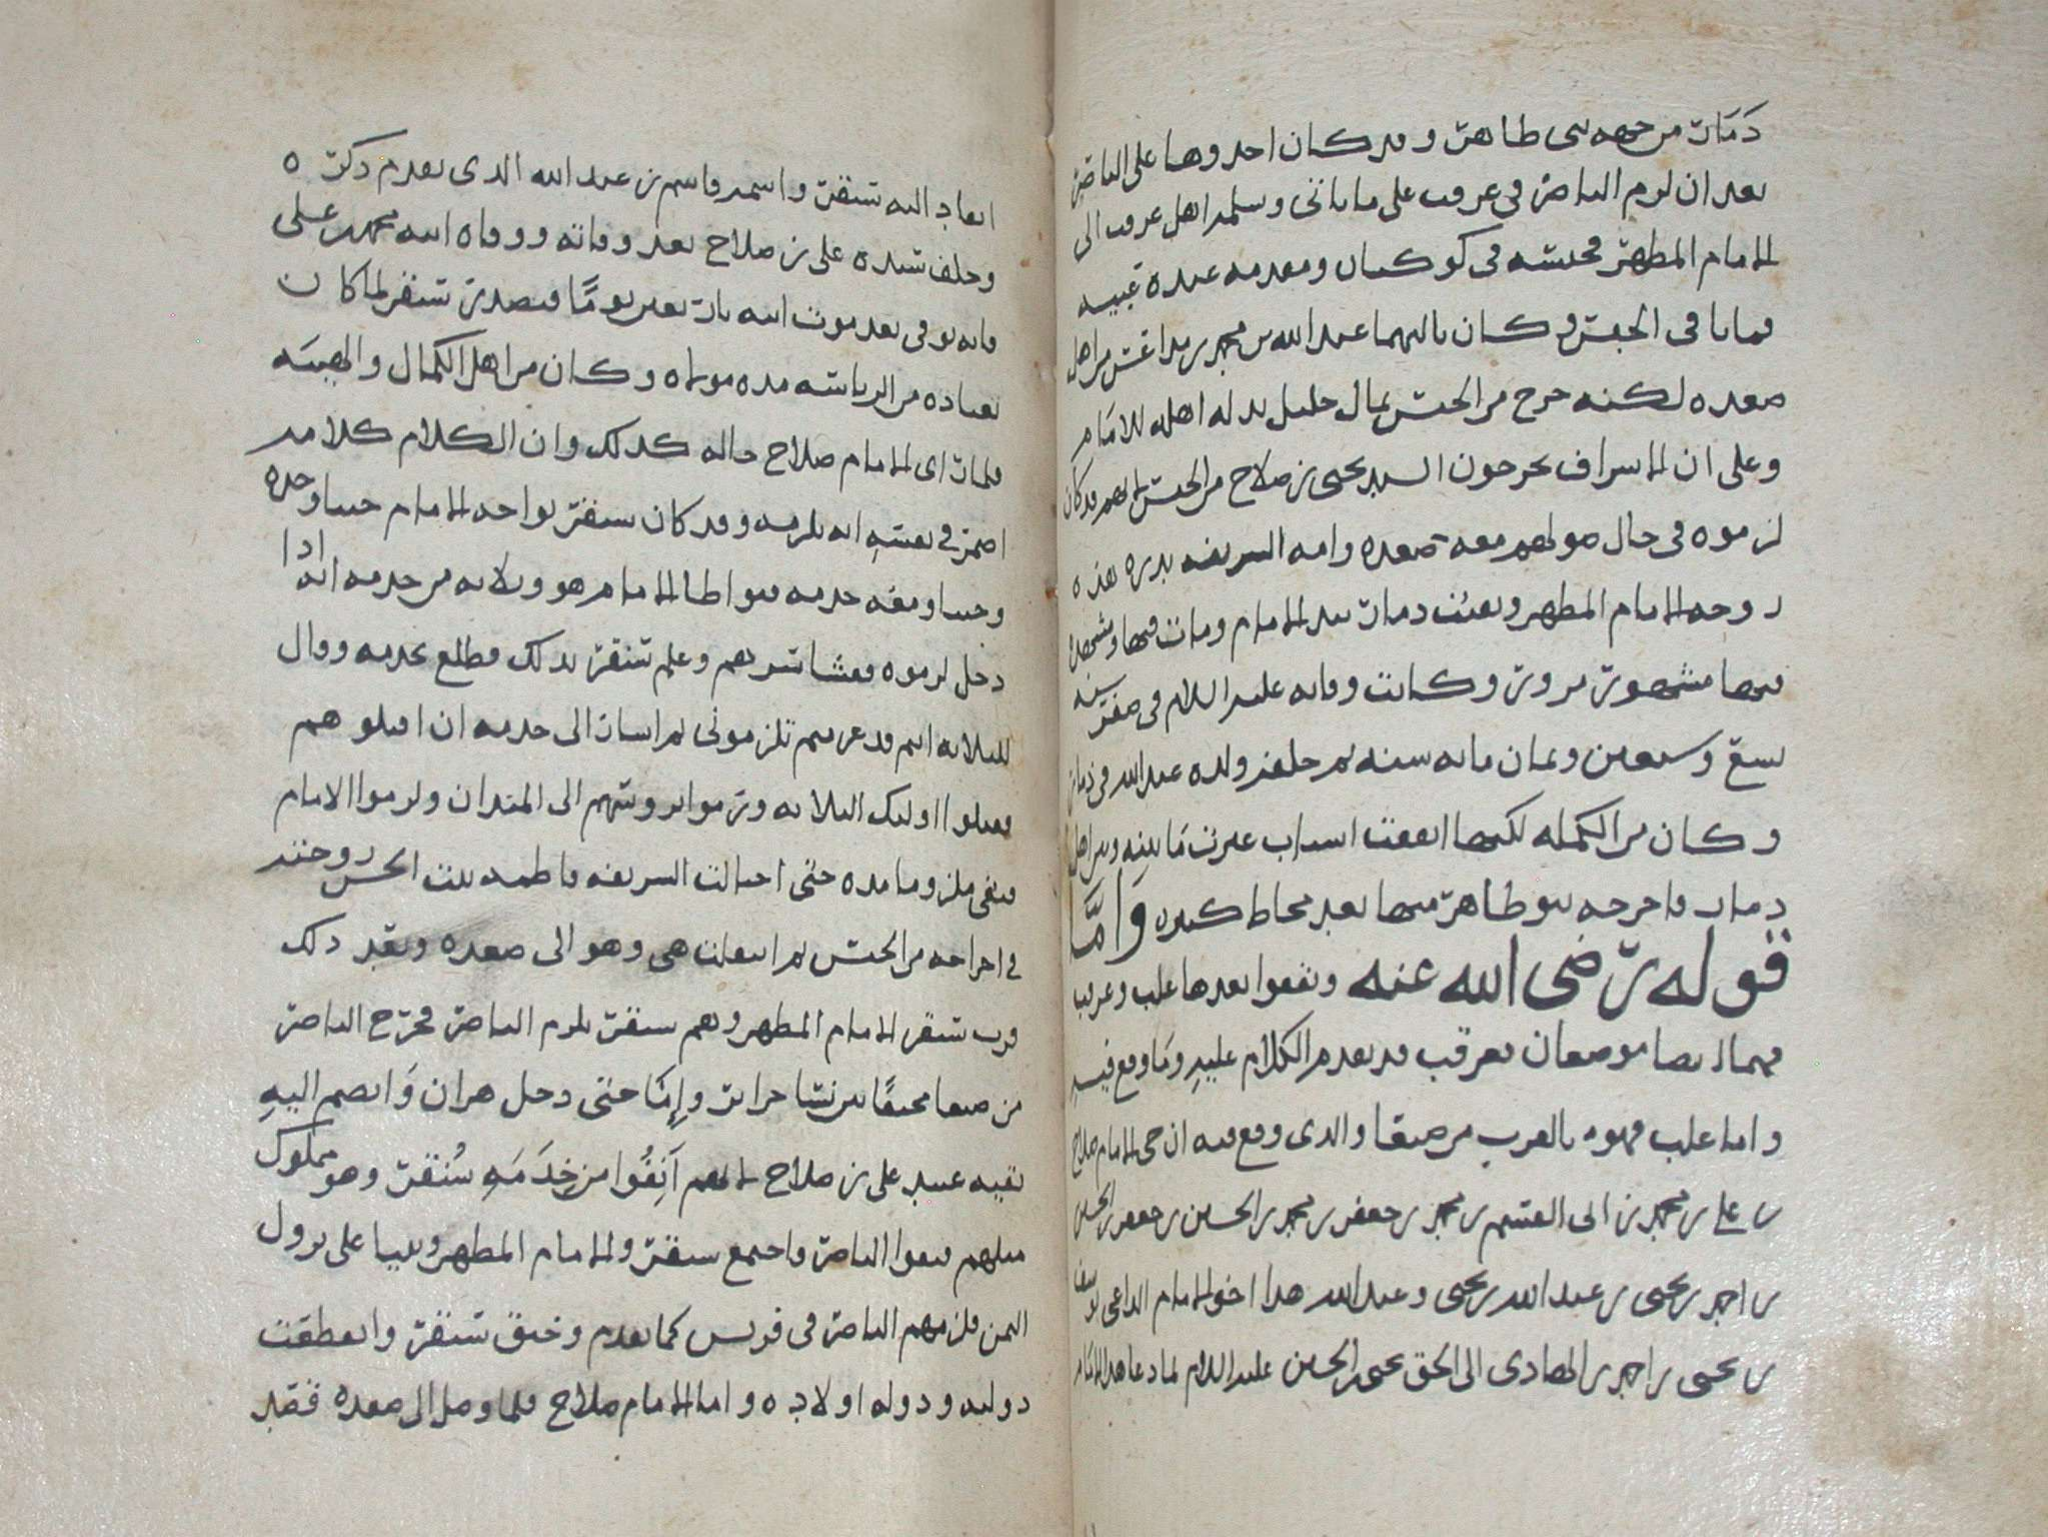 ذمار من جهه بنى طاهر وقد كان اخذوها على الناصر
بعد ان لزم الناصر فى عرقب على ما ياتى وسلمه اهل عرقب الى
الامام المطهر فحبسه فى كوكبان ومعه عبده
فماتا فى الحبس وكان ثالثهما عبد الله بن محمد بن مداعس من اهل
صعده لكنه خرج من الحبس بمال جليل بذله اهله للامام
وعلى ان الاشراف يخرجون السيد يحيى بن صلاح من الحبس لانهم قد كان
لزموه فى حال صولهم معه صعده وامه الشريفه بدره هذه
زوجه الامام المطهر وبقيت ذمار بيد الامام ومات فيها ومشهده
فيها مشهور مزور وكانت وفاته عليه السلام فى صفر سنه
تسع وسبعين وثمان مائه سنه ثم خلفه ولده عبد الله فى ذمار
وكان من الكمله لكنها اتفقت اسباب غيرت ما بينه وبين اهل
ذمار فاخرجه بنو طاهر منها بعد محاط كثيره وَامَّا
قوله رضى الله عنه وبقعوا بعدها علب وعرقب
فهما ايضا موضعان فعرقب قد تقدم الكلام عليهِ ومَا وقع فيه
واما علب فهو بالقرب من صنعا والذى وقع فيه ان حى الامام صلاح
بن على بن محمد بن ابى القسم بن محمد بن جعفر بن محمد بن الحسين بن جعفر بن الحسين
بن احمد بن يحيى بن عبد الله بن يحيى وعبد الله هذا اخو الامام الداعى يوسف
بن يحيى بن احمد بن الهادى الى الحق يحيى بن الحسين عليه السلام لما دعا هذا الامام
انعاد اليه سنقر واسمه قاسم بن عبد الله الذى تقدم ذكره
وخلف سيده على بن صلاح بعد وفاته ووفاه ابنه محمد بن على
فانه توفى بعد موت ابيه باربعين يومًا فتصدر سنقر لما كان
يعتاده من الرياسه مده مولاه وكان من اهل الكمال والهيبَه
فلما راى الامام صلاح حاله كذلك وان الكلام كلامه
اضمر فى نفسهِ انه يلزمه وقد كان سنقر يواجه الامام حينا وحده
وحينا ومعه خدمه فتواطا الامام هو وثلاثه من خدمه انه اذا
دخل لزموه ففشا سرهم وعلم سنقر بذلك فطلع بخدمه وقال
للثلاثه انتم قد عزمتم تلزمونى ثم اشار الى خدمه ان اقتلوهم
فقتلوا اوليك الثلاثه ورموا بروسهم الى الميدان ولزموا الامام
فبقى ملزوما مده حتى احتالت الشريفه فاطمه بنت الحسن زوجته
فى اخراجه من الحبس ثم انتقلت هى وهو الى صعده وبعد ذلك
قرب سنقر الامام المطهر وهم سنقر بلزم الناصر فخرج الناصر
من صنعا مختفيًا بين نسا حراير وإِمَا حتى دخل هران وَانضم اليهِ
بقيه عبيد على بن صلاح لانهم اَنِفُوا من خِدَمَهِ سُنقر وهو مملوك
مثلهم فبقوا الناصر فاجتمع سنقر والامام المطهر وبنيا على نزول
اليمن فلزمهم الناصر فى قريس كما تقدم وخنق سنقر وانقطعت
دولته ودوله اولاده واما الامام صلاح فلما وصل الى صعده فقد